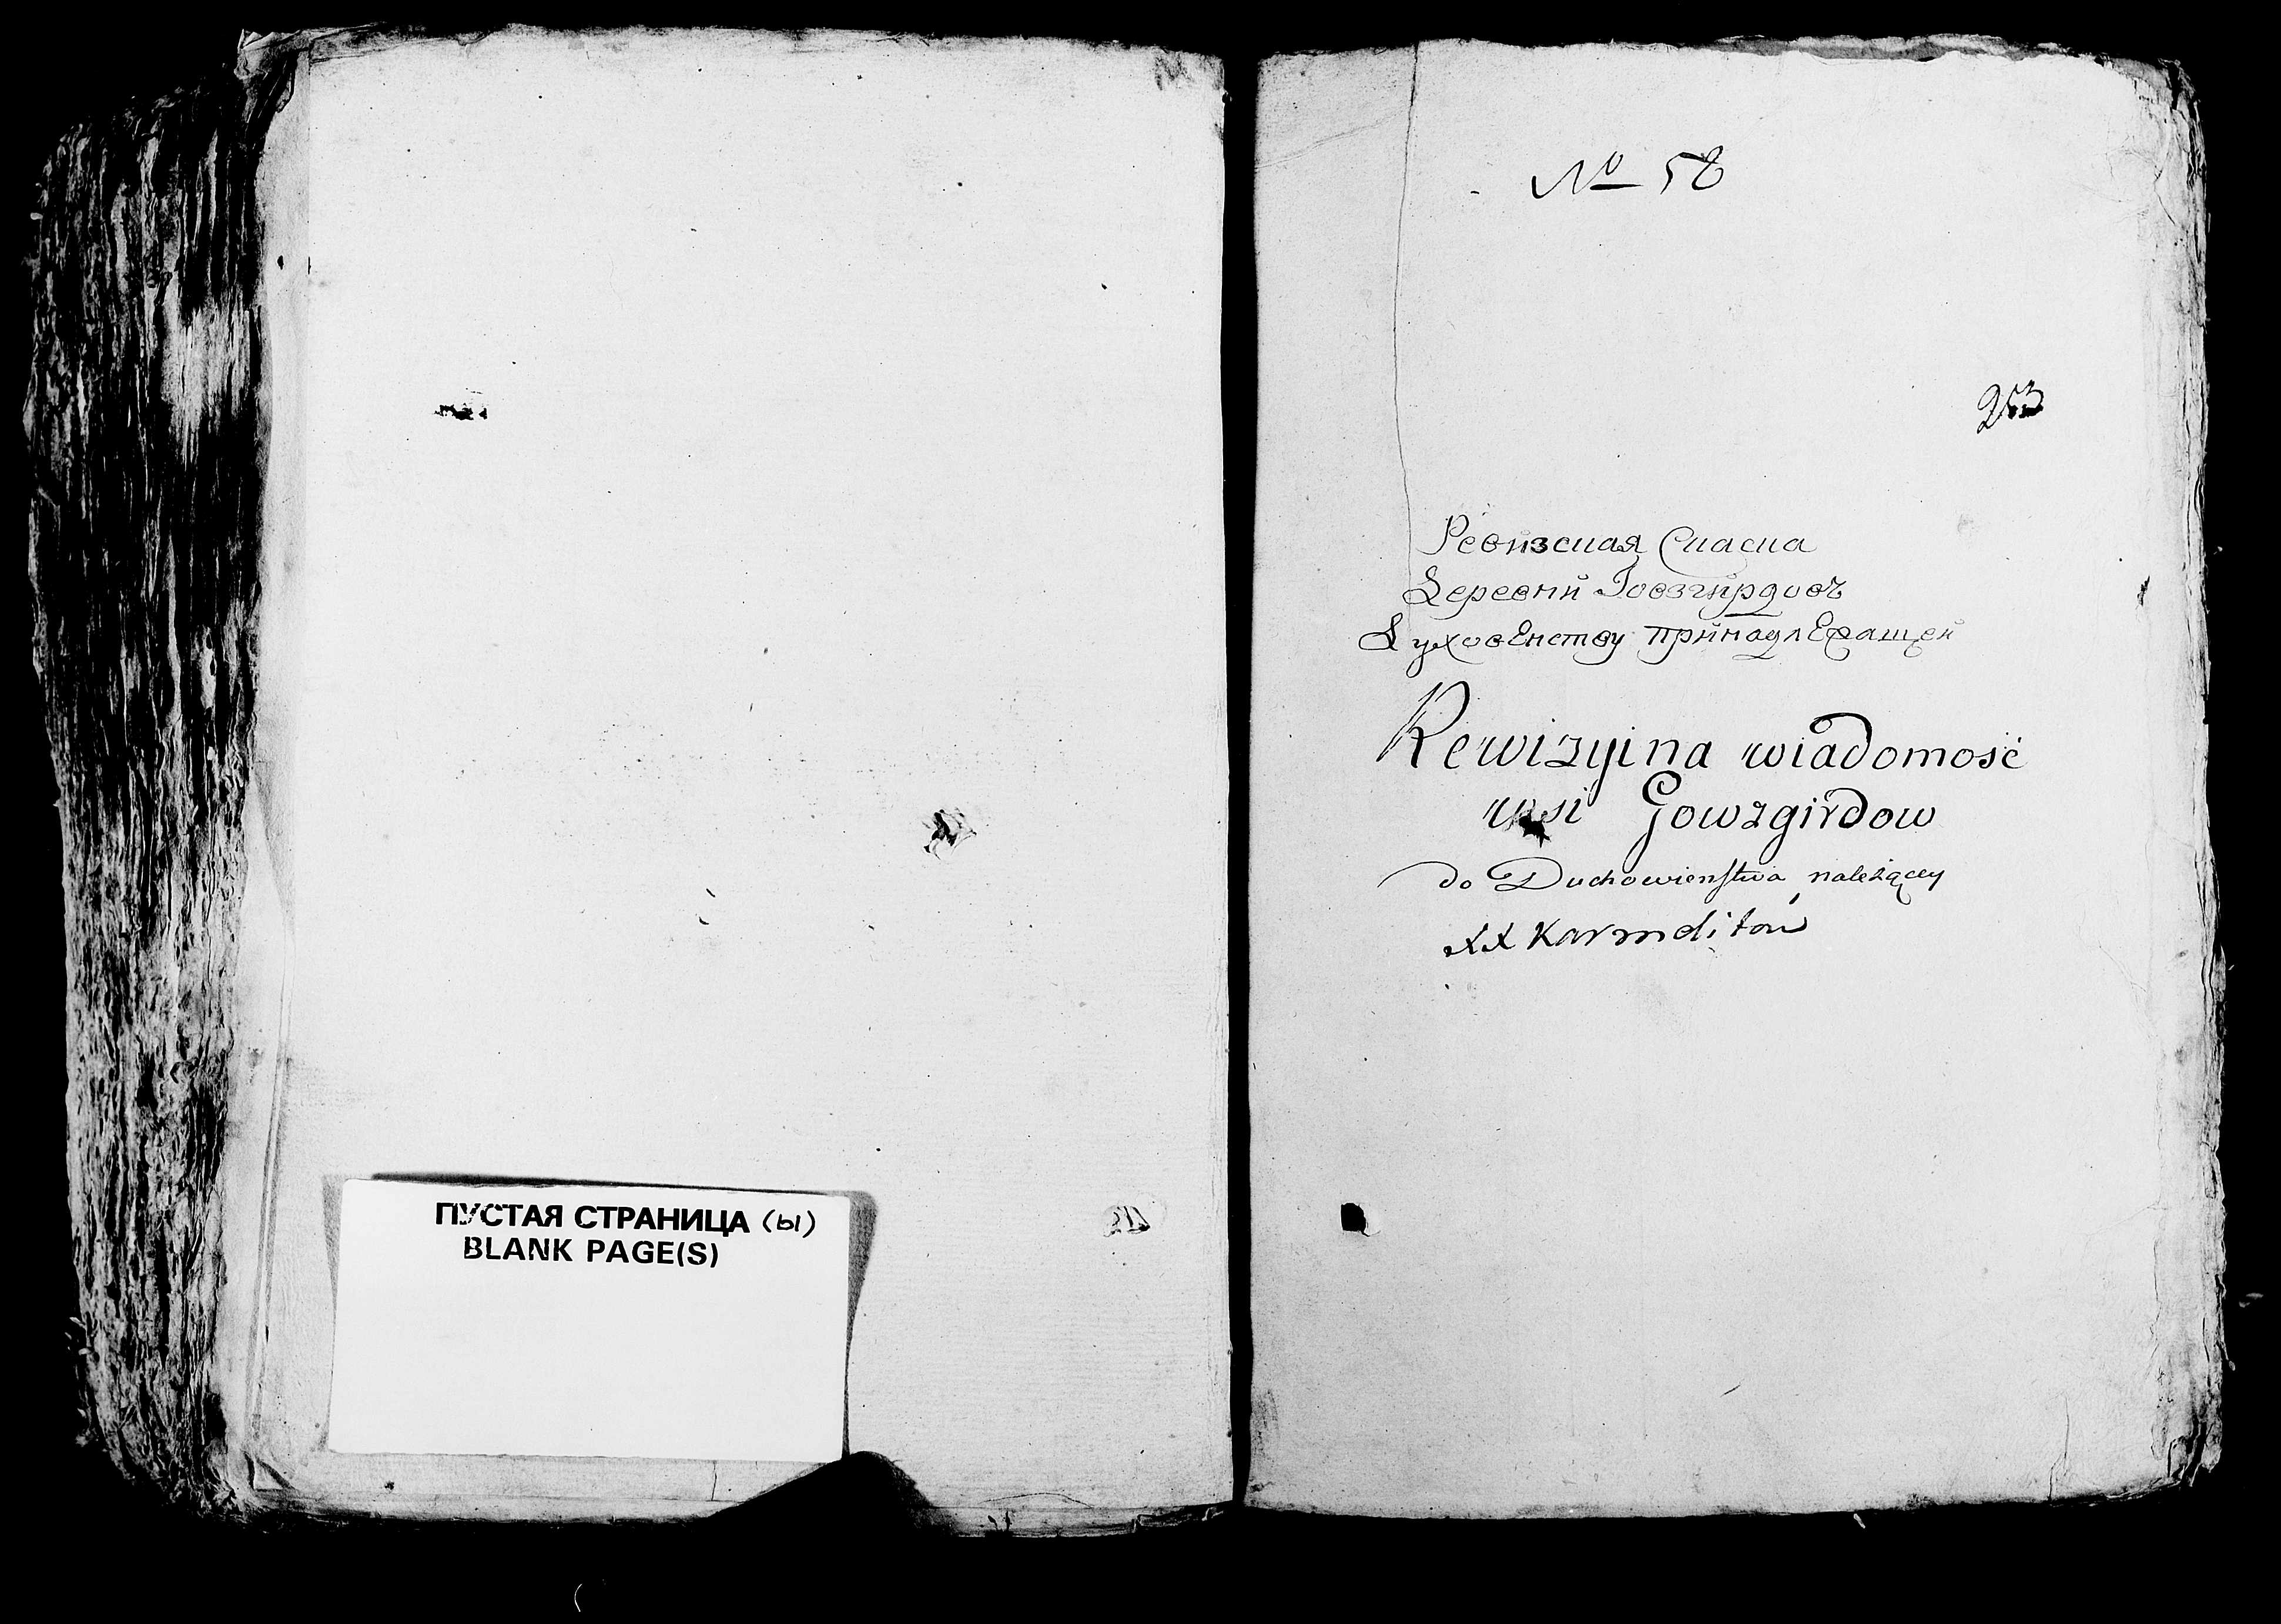 ПУСТАЯ СТРАНИЦА (ы)
BLANK PAGE(S)
№ 58
253
Ревизская Скаска
Деревни Говзгирдовъ
Духовенству принадлежащей
Rewizyina wiadomość
wsi Gowzgirdow
do Duchowienstwa należącey
XX Karmelitow